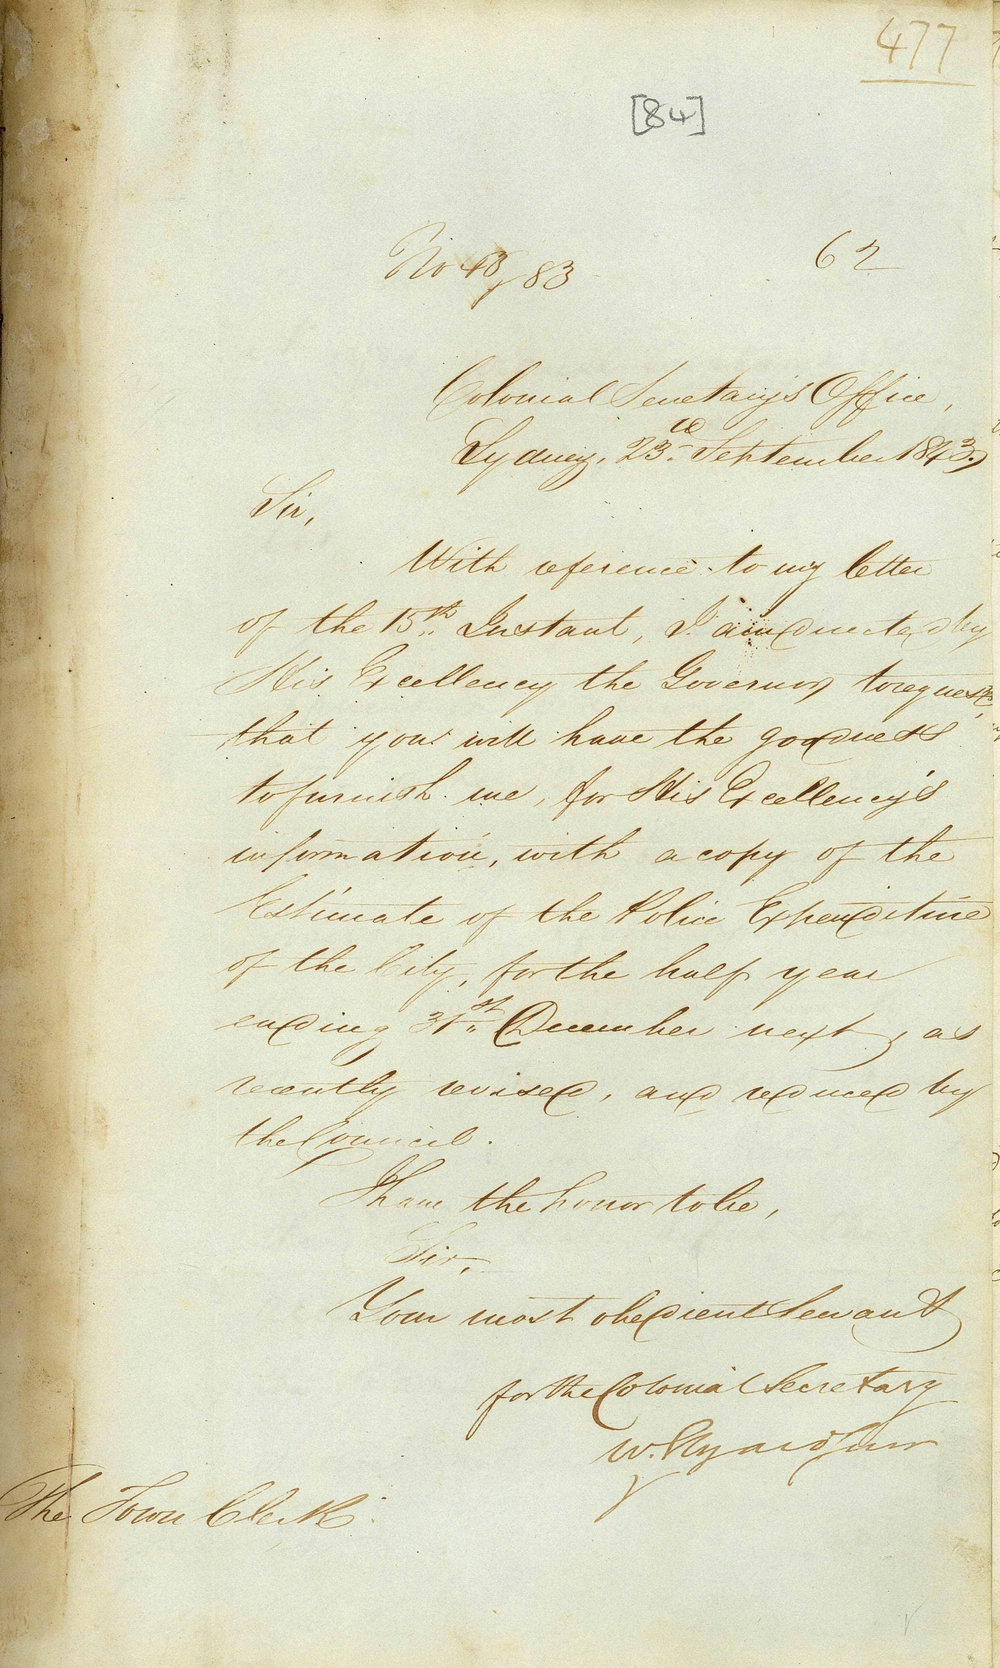 477
[84]
No 43/83
62
Colonial Secretary's Office,
Sydney, 23rd September 1843,
Sir,
With reference to my letter
of the 15th Instant, I am directed by
His Excellency the Governor, to request,
that you will have the goodness
to furnish me, for His Excellency's
information, with a copy of the
Estimate of the Police Expenditure
of the City, for the half year
ending 31st December next, as
recently revised, and reduced by
the Council.
I have the honor to be,
Sir,
Your most obedient Servant
for the Colonial Secretary
W. Elyard Junr
The Town Clerk.